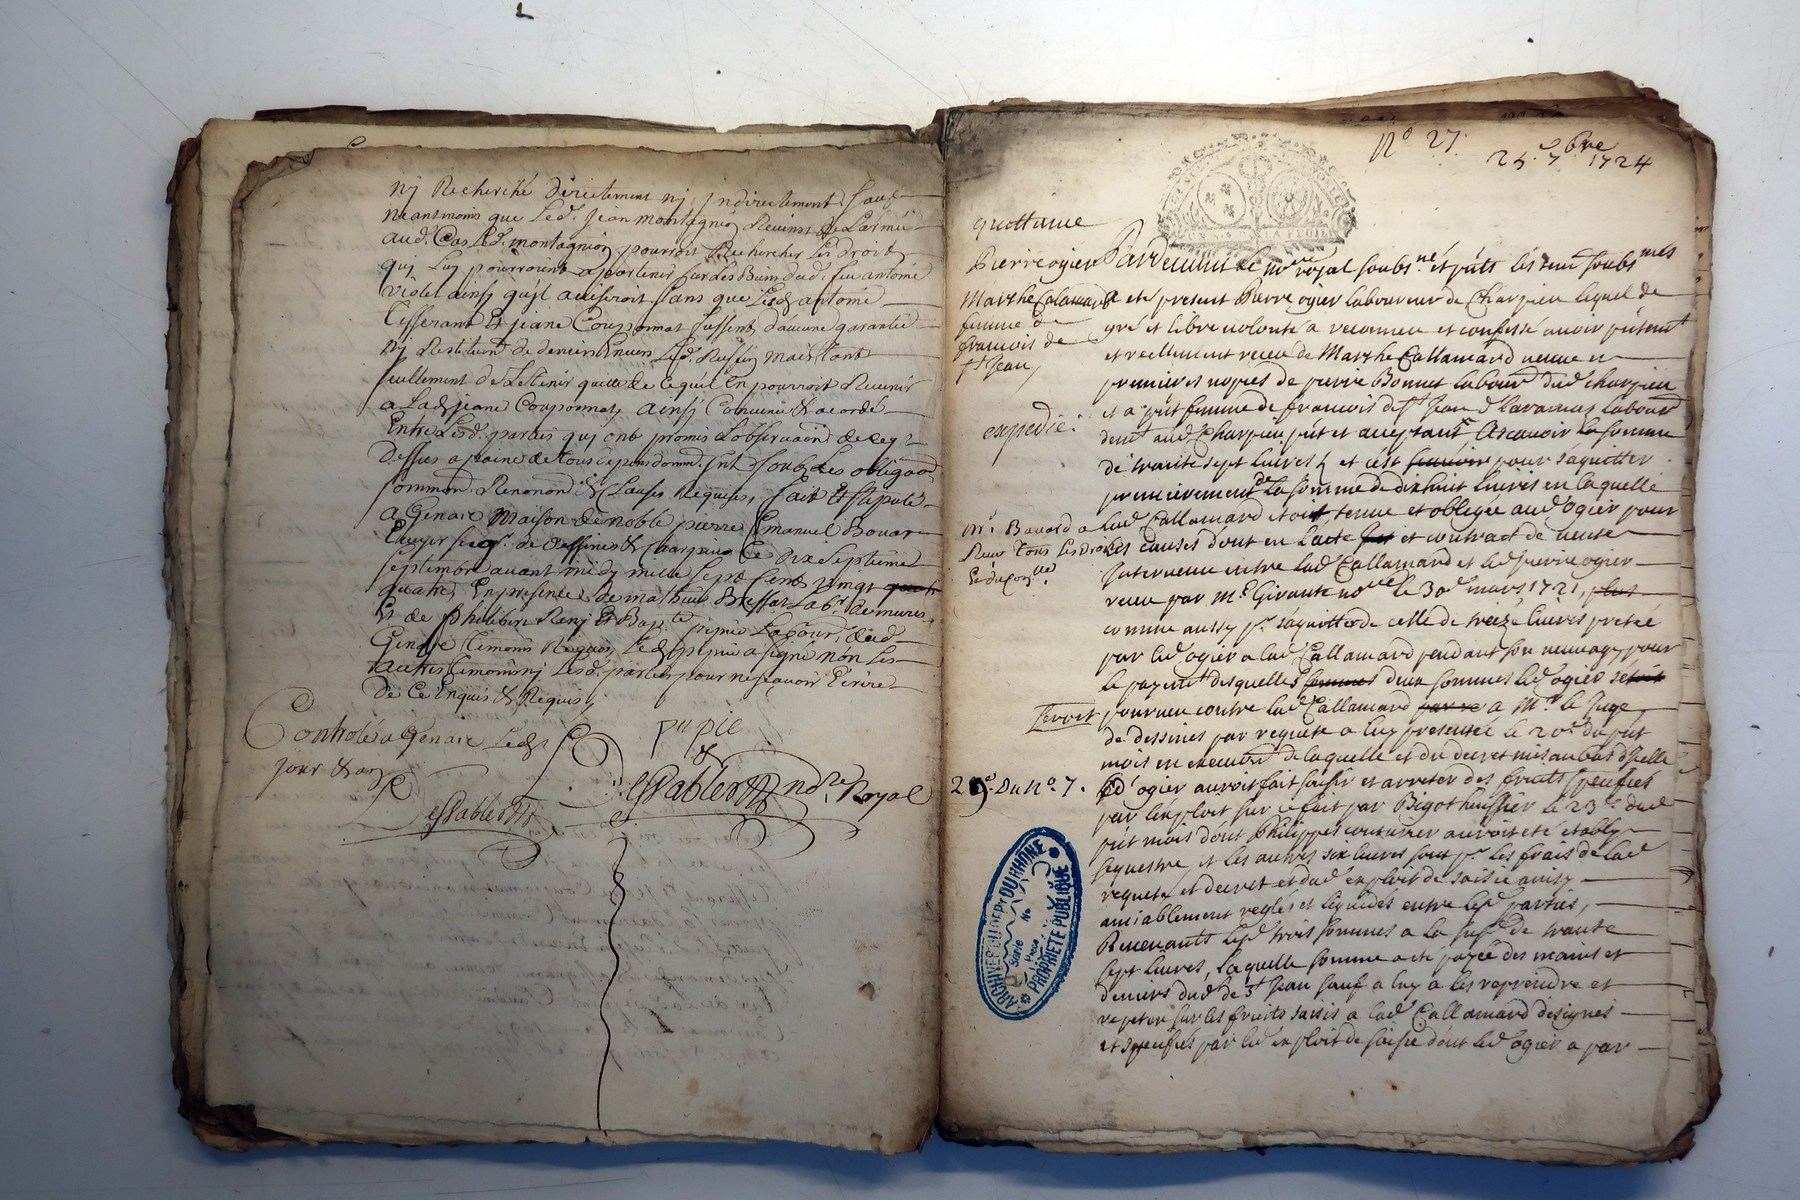 nj Recherché directement nj Jndirectement, Sauf
neantmoins que Led. Jean montagnion Revinst de Larmée
aud. Cas Led. montagnion pourroit Rechercher Les Droits
quj Luy pourroient apartenir sur Les Biens dud. feu antoine
Violet ainsj qu'jl aviseroit, sans que Lesd. antoine
Tisserant Et jeane Couponnat fussent d'aucune garantie
nj Restitution de deniers Envers Led. mais Tant
seullement de Le Tenir quitte de ce qu'il En pourroit Revenir
a Lad. jeane Couponnat, ainsj Convenu & acordé
Entre Lesd. parties quj ont promis L'observation de Ce quj
Dessus a paine de tous depens domm. Jnt. & soub Les obligaon
sommon. Renonon. & Clauses Requises, fait Et stipulé
a Genaic Maison de noble pierre Emanuel Bouar
Ecuyer seigr. de dessines & charpieu Ce dix septieme
septembre avant midy mille sept Cents vingt
quatre, En presence de mathieu Bressat Labr. de mures
Et de philibert Renj Et Bapte. pipie Labour. dud.
Genaic Temoins Requis, Led. pipie a signé non Les
autres temoins nj Lesd. parties pour ne sçavoir Ecrire
De Ce Enquis & Requis,
Controlé a Genaic Led.
jour & an
pupie
&
Essablettes nore. Royal
Essablettes
No 27.
25. 7bre 1724
quottance
Pierre ogier
Marthe Calamard
femme de
francois de
st Jean
expedié.
Mr. Bavard a
Receu Tous Les Droits
29e. Du no. 7.
Pardevant le nore royal soubsne. et puts les tem. soubsmes
a eté present Pierre ogier laboureur de Charpieu lequel de
gré et libre volonté a reconneu et confessé avoir pntemt.
et reellement receu de Marthe Callamard veuve en
premieres nopces de pierre Bonnet labour. dud. charpieu
et a pnt femme de francois de st Jean labour.
demt. aud. Charpieu pnt et acceptant Ascavoir la somme
de trante sept livres et c'est pour s'aquotter
premierement de la somme de dix huit livres en laquelle
lad. Callamard etoit tenue et obligée aud. ogier pour
les causes dont en l'acte et contract de vente
Intervenu entre lad. Callamard et led. pierre ogier
receu par Me. Girault nore le 30e. mars 1721,
comme aussy pr. s'aquotter de celle de treize livres pretée
par led. ogier a lad. Callamard pendant son veuvage, pour
le payemt. desquelles deux sommes led. ogier se
seroit pourveu contre lad. Callamard a Mr. le Juge
de dessines par requete a luy presentée le 20e. du pnt
mois en execution de laquelle et du decret mis au bas d'icelle
led. ogier auroit fait saisir et arreter des fruits specifiés
par l'exploit sur ce fait par Bigot huissier le 23e. dud.
pnt mois dont Philippe couturier auroit eté etably
sequestre, et les autres six livres sont pr. les frais de lad.
requete et decret et dud. exploit de saisie ainsy
amiablement reglés et liquidés entre lesd. parties,
Revenants lesd. trois sommes a la susd. de trante
sept livres, laquelle somme a eté payée des mains et
deniers dud. de st Jean sauf a luy a les reprendre et
repeter sur les fruits saisis a lad. Callamard designés
et specifiés par led. exploit de saisie dont led. ogier a par
ARCHIVES DU DEPT DU RHÔNE
Serie
No
PROPRIETE PUBLIQUE